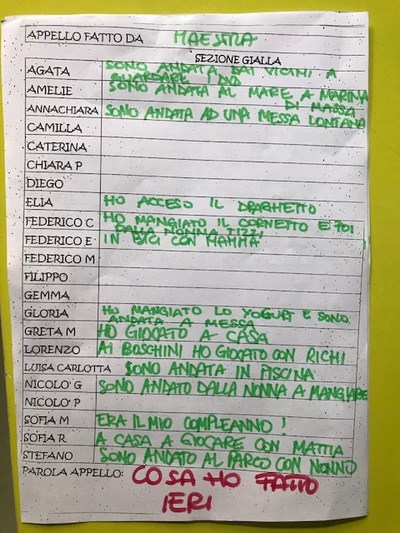 APPELLO FATTO DA MAESTRA
SEZIONE GIALLA
AGATA SONO ANDATA DAI VICINI A GUARDARE I
AMELIE SONO ANDATA AL MARE A MARINA DI MASSA
ANNACHIARA SONO ANDATA AD UNA MESSA LONTANA
CAMILLA
CATERINA
CHIARA P
DIEGO
ELIA HO ACCESO IL DRAGHETTO
FEDERICO C HO MANGIATO IL CORNETTO E POI DALLA NONNA TIZZI
FEDERICO E IN BICI CON MAMMA
FEDERICO M
FILIPPO
GEMMA
GLORIA HO MANGIATO LO YOGURT E SONO ANDATA A MESSA
GRETA M HO GIOCATO A CASA
LORENZO AI BOSCHINI HO GIOCATO CON RICHI
LUISA CARLOTTA SONO ANDATA IN PISCINA
NICOLO' G SONO ANDATO DALLA NONNA A MANGIARE
NICOLO' P
SOFIA M ERA IL MIO COMPLEANNO !
SOFIA R A CASA A GIOCARE CON MATTIA
STEFANO SONO ANDATO AL PARCO CON NONNO
PAROLA APPELLO: COSA HO FATTO
IERI